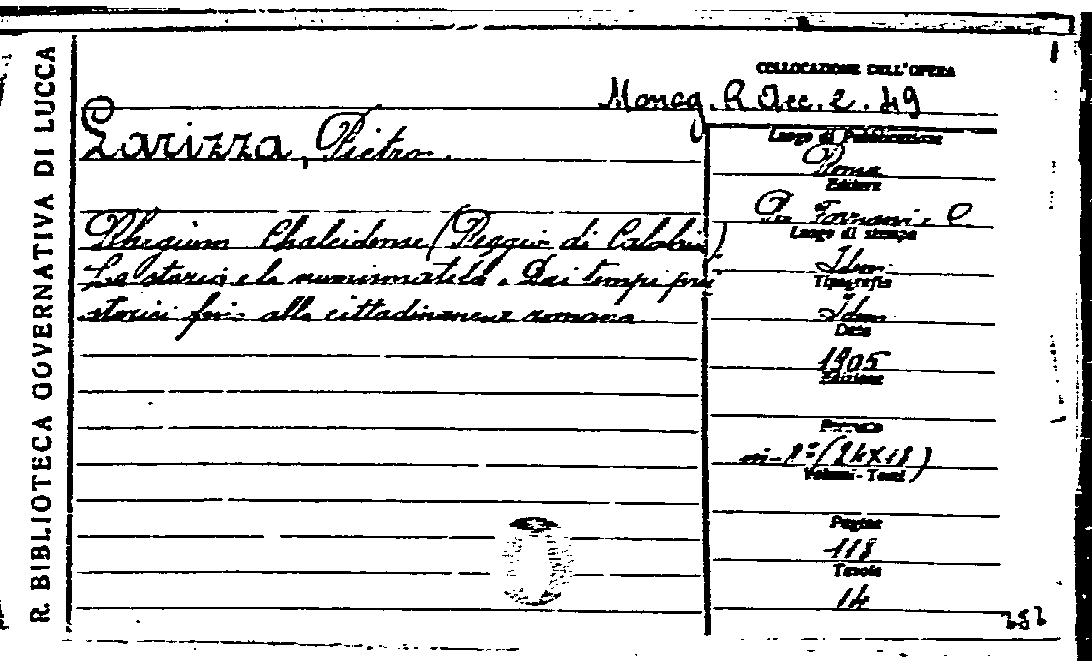 R. BIBLIOTECA GOVERNATIVA DI LUCCA
COLLOCAZIONE DELL'OPERA
Monog. R Arc. 2. 49
Larizza, Pietro.
Rhegium Chalcidense (Reggio di Calabria)
La storia e la numismatica. Dai tempi prei
storici fino alla cittadinanza romana
Luogo di Pubblicazione
Roma
Editore
Forzani e C
Luogo di stampa
Idem
Tipografia
Idem
Data
1905
Edizione
Formato
in-8º (24X18)
Volumi-Tomi
Pagine
118
Tavole
14